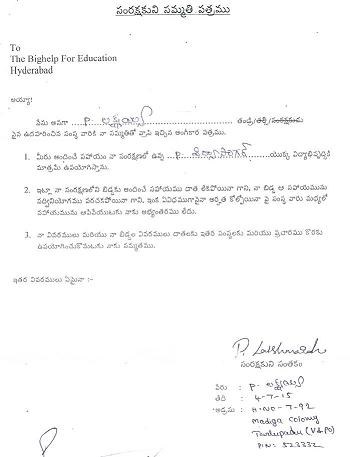 సంరక్షకుని సమ్మతి పత్రము
To
The Bighelp For Education
Hyderabad
అయ్యా!
నేను అనగా P. లక్ష్మయ్య తండ్రి/తల్లి/సంరక్షకుడు
పైన ఉదహరించిన సంస్థ వారికి నా సమ్మతితో వ్రాసి ఇచ్చిన అంగీకార పత్రము.
1. మీరు అందించే సహాయం నా సంరక్షణలో ఉన్న P. యొక్క విద్యాభివృద్ధికి
మాత్రమే ఉపయోగిస్తాను.
2. ఇట్లా నా సంరక్షణలోని బిడ్డకు అందించే సహాయము దాత లేకపోయినా గాని, నా బిడ్డ ఆ సహాయమును
సద్వినియోగము పరచకపోయినా గాని, ఇంక ఏవిధముగానైనా అర్హత కోల్పోయినా పై సంస్థ వారు మధ్యలో
సహాయమును ఆపివేయుటకు నాకు అభ్యంతరము లేదు.
3. నా వివరములు మరియు నా బిడ్డల వివరములు దాతలకు ఇతర సంస్థలకు మరియు ప్రచారము కొరకు
ఉపయోగించుకొనుటకు నాకు సమ్మతము.
ఇతర వివరములు ఏమైనా :-
P. Lakshmaiah
సంరక్షకుని సంతకం
పేరు : P. లక్ష్మయ్య
తేది : 4-7-15
అడ్రసు : H.NO-7-92
Madiga Colony
(V&PO)
PIN: 523332